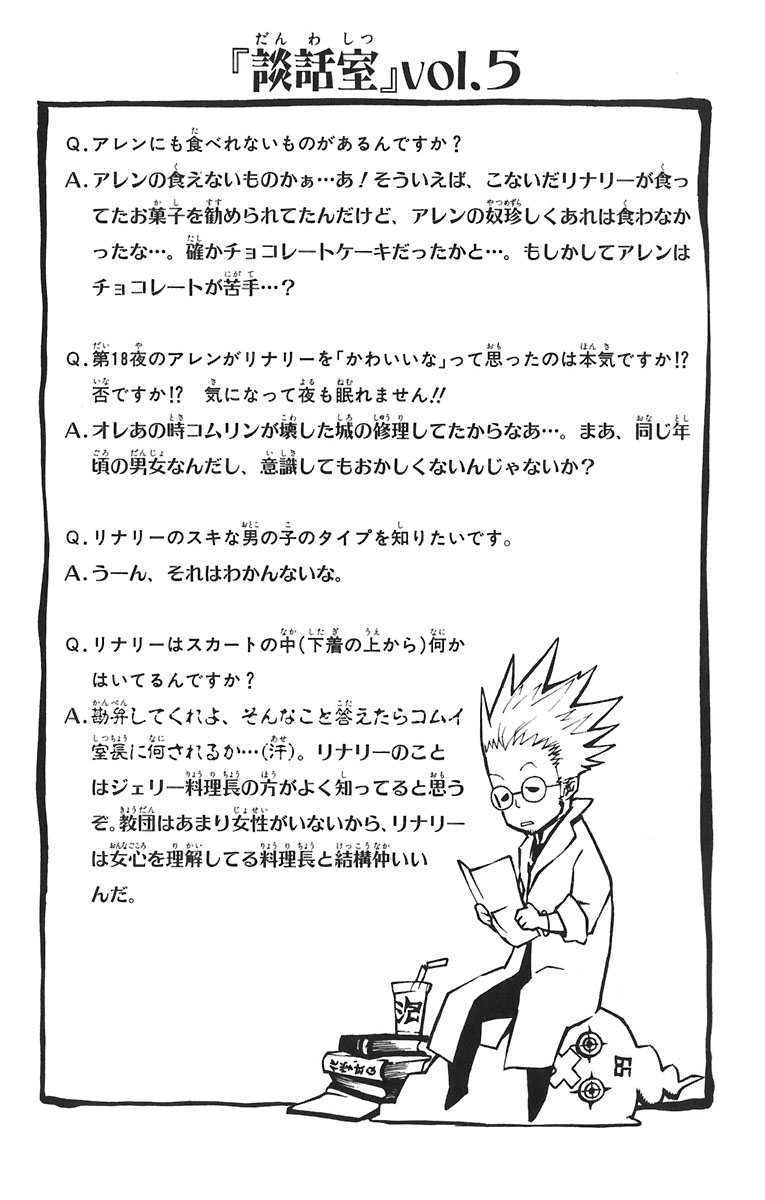 『談話室』vol.5
Q.アレンにも食べれないものがあるんですか?
A.アレンの食えないものかぁ…あ!そういえば、こないだリナリーが食っ
てたお菓子を勧められてたんだけど、アレンの奴珍しくあれは食わなか
ったな…。確かチョコレートケーキだったかと…。もしかしてアレンは
チョコレートが苦手…?
Q.第18夜のアレンがリナリーを「かわいいな」って思ったのは本気ですか!?
否ですか!? 気になって夜も眠れません!!
A.オレあの時コムリンが壊した城の修理してたからなあ…。まあ、同じ年
頃の男女なんだし、意識してもおかしくないんじゃないか?
Q.リナリーのスキな男の子のタイプを知りたいです。
A.うーん、それはわかんないな。
Q.リナリーはスカートの中(下着の上から)何か
はいてるんですか?
A.勘弁してくれよ、そんなこと答えたらコムイ
室長に何されるか…(汗)。リナリーのこと
はジェリー料理長の方がよく知ってると思う
ぞ。教団はあまり女性がいないから、リナリー
は女心を理解してる料理長と結構仲いい
んだ。
泥
65